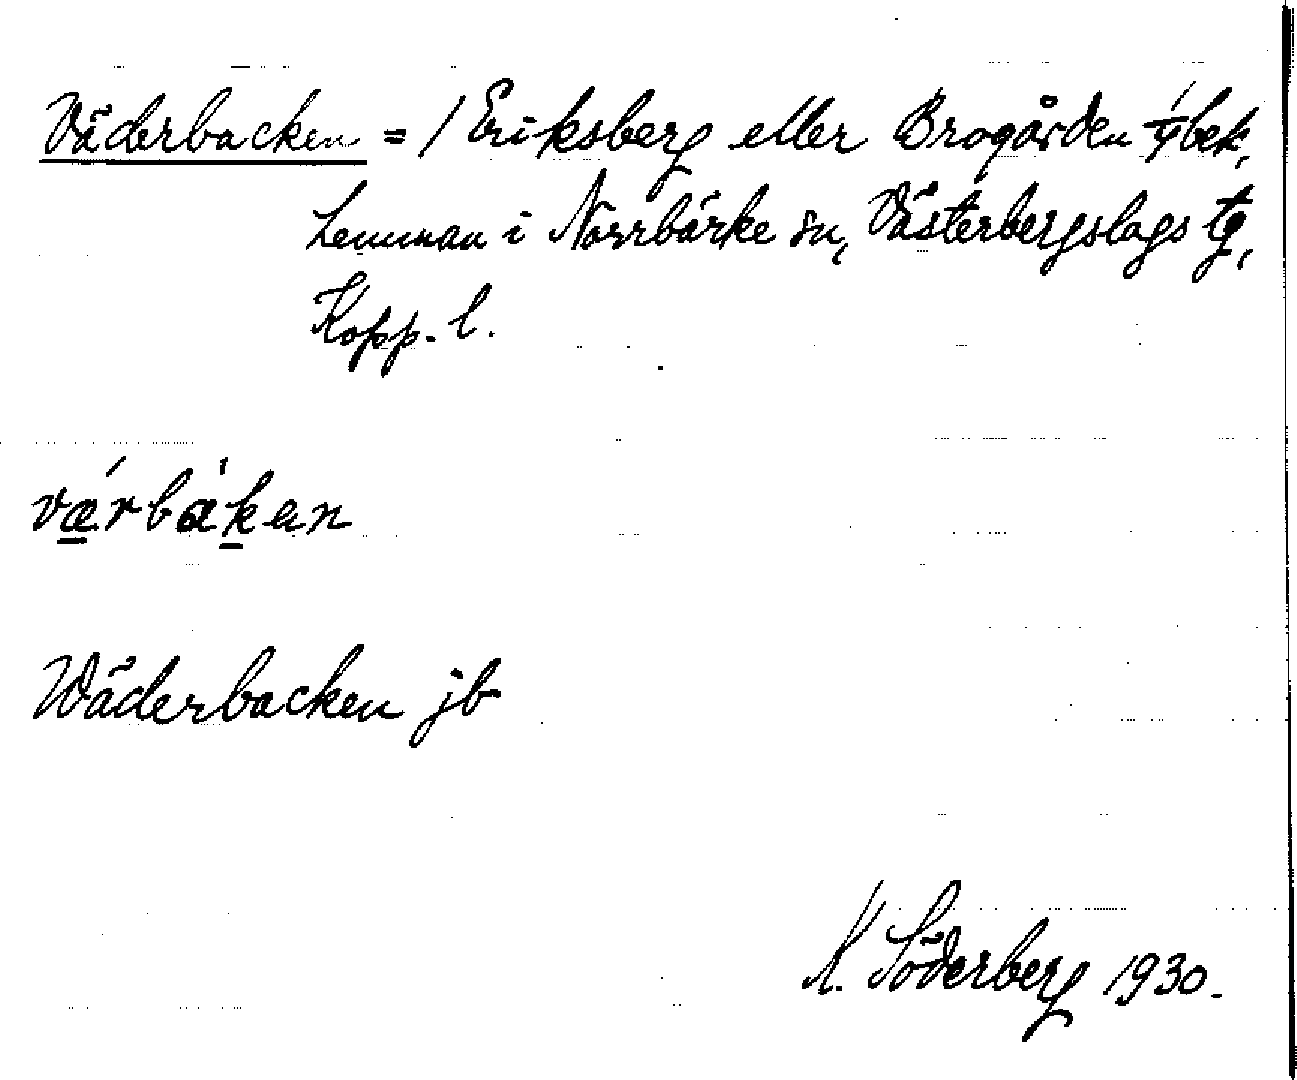 Väderbacken = / Eriksberg eller Brogården ɏbek,
Lernman i Norrbärke sn, Västerbergslags tg,
Kopp. l.
vǽrbákan
Wäderbacken jb
K. Söderberg 1930.